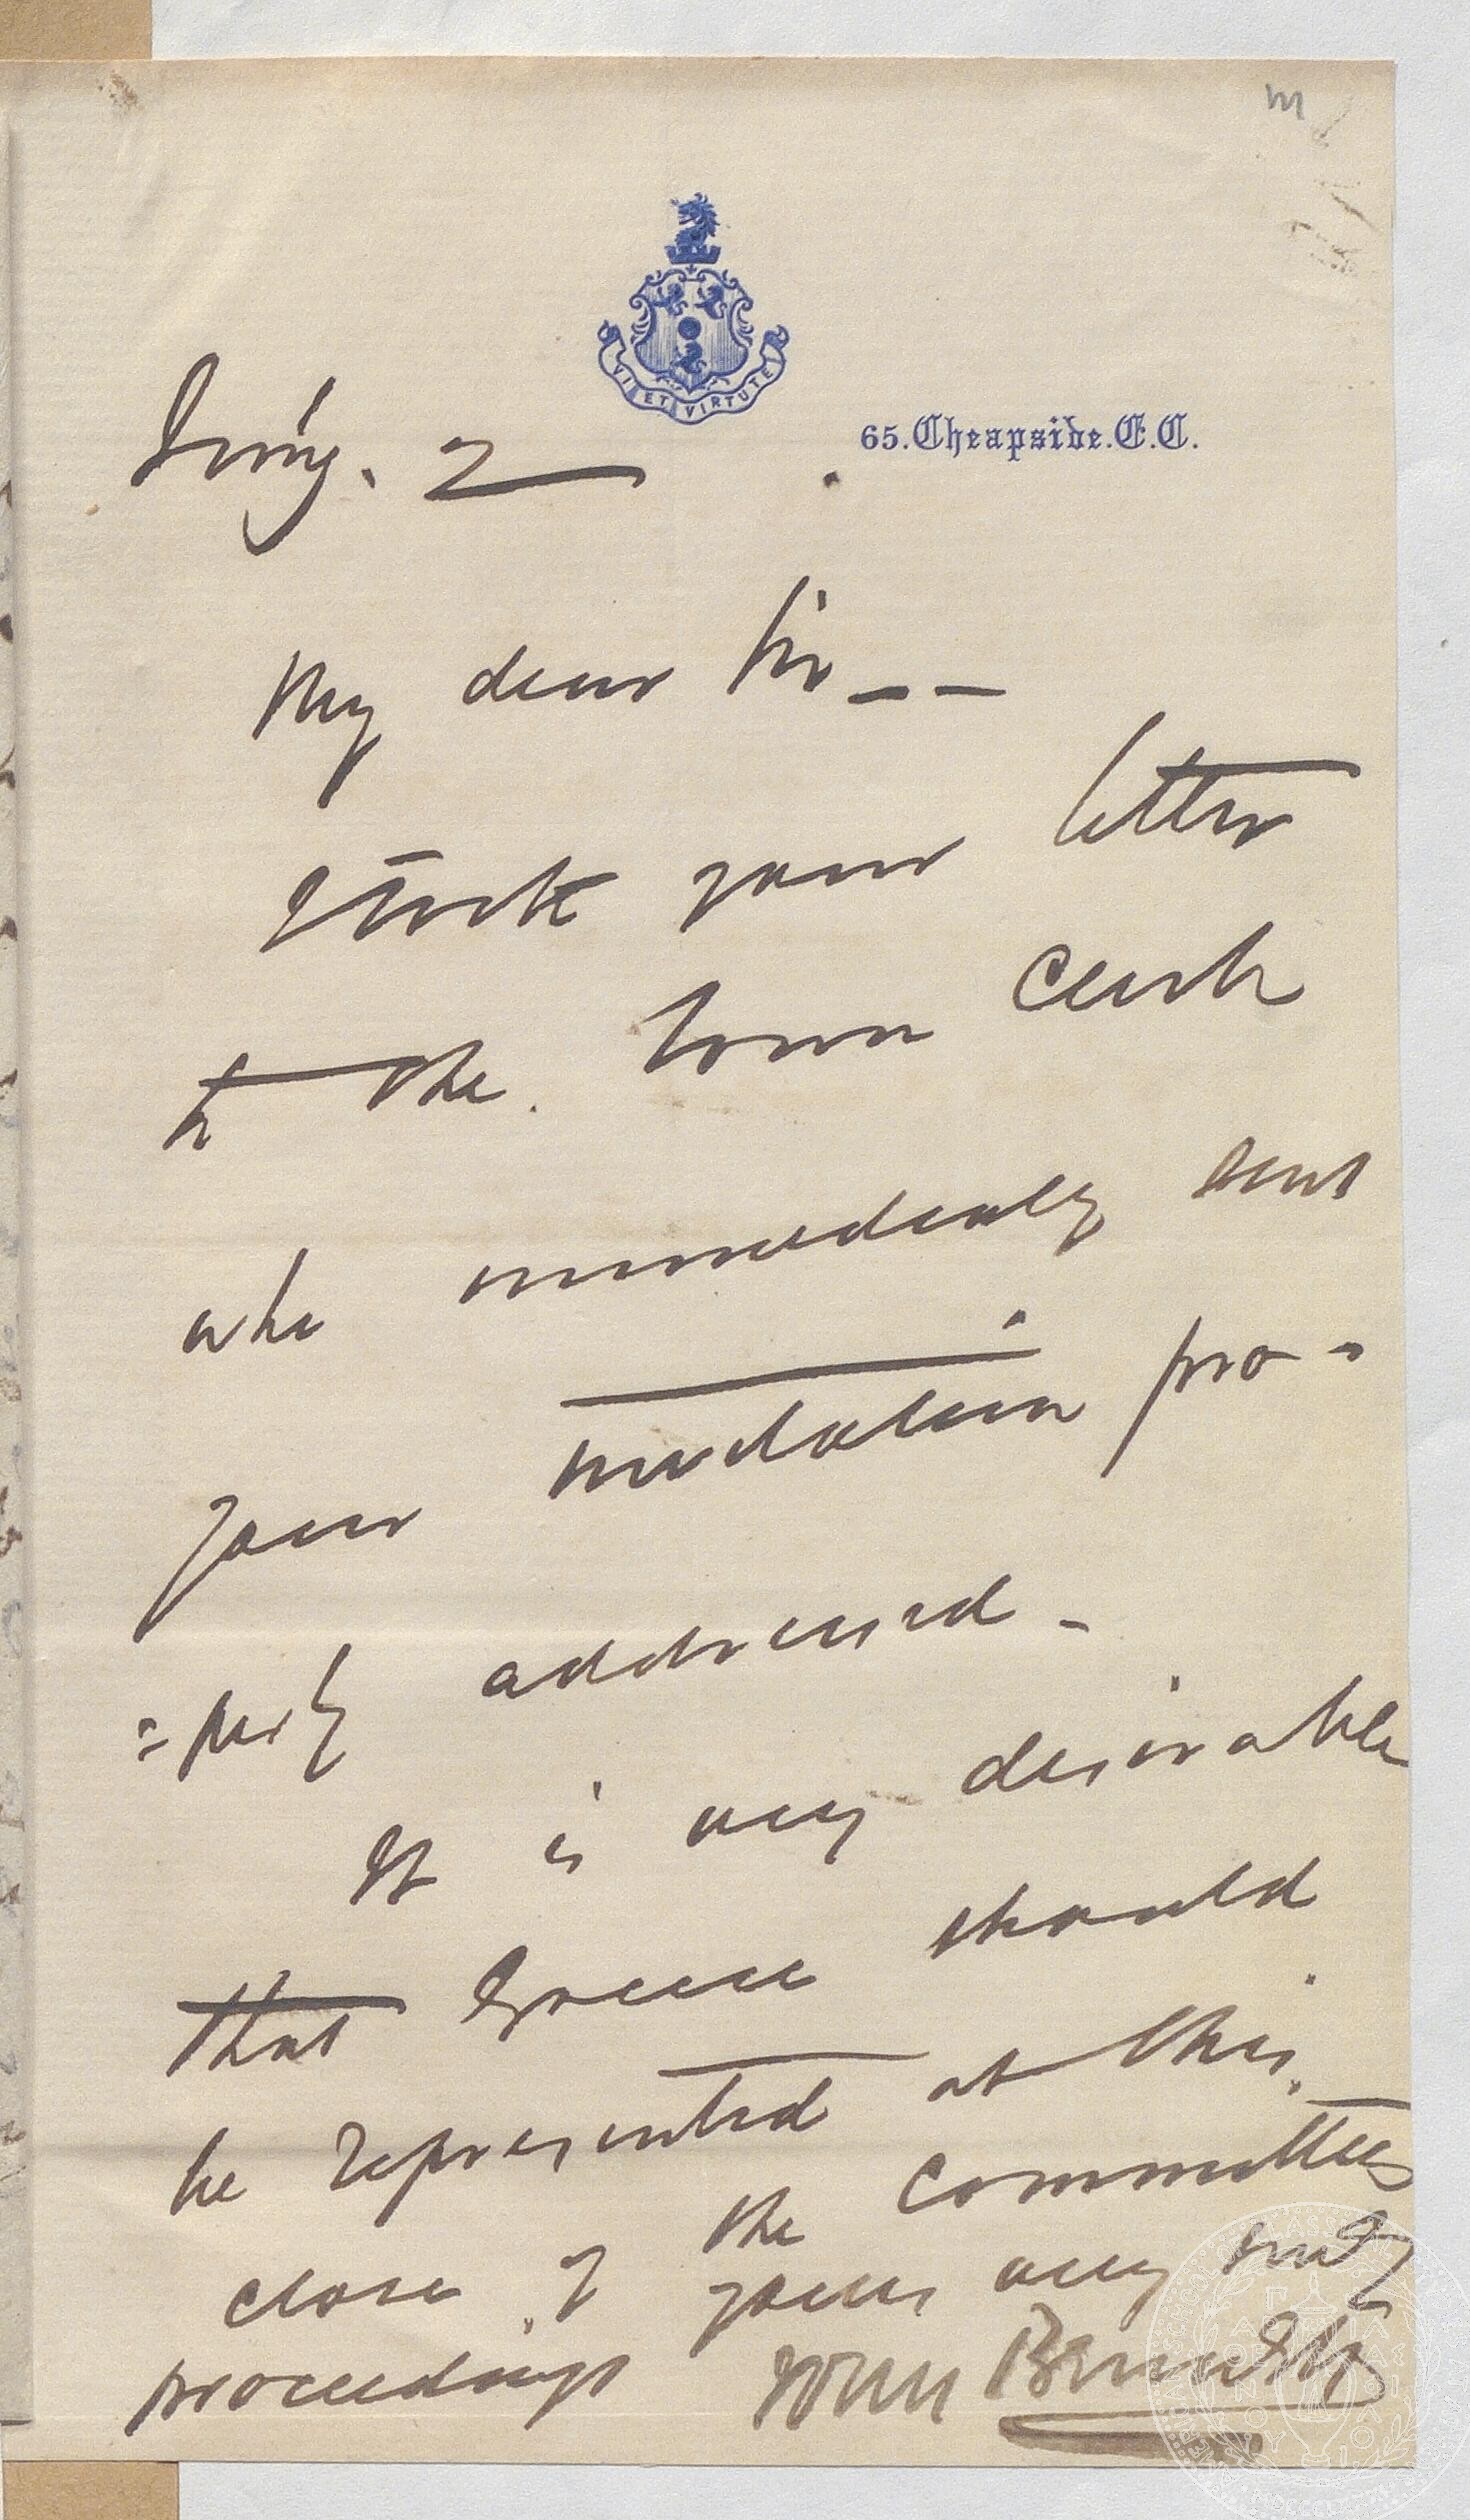 m
VI ET VIRTUTE
65. Cheapside. E.C.
2
My dear Sir _ _
I took your letter
to the Town Clerk
who immediately sent
your invitation pro-
=perly addressed -
It is very desirable
that Greece should
be represented at this
close of the committees
proceedings yours very truly
John Bennett